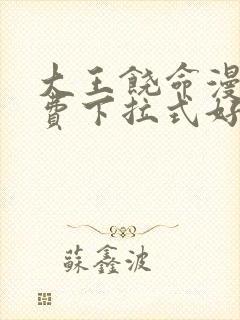 大王饶命漫
费下拉式好
蘇鑫波